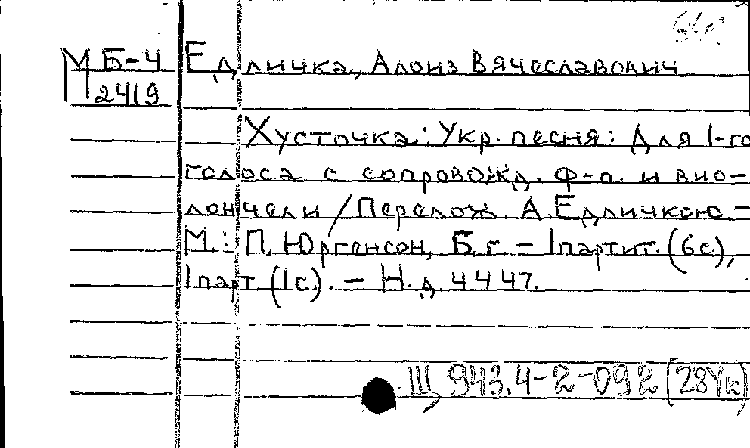 М Б-4 Едличка, Алоиз Вячеславович
2419
Хусточка: Укр. песня: Для 1-го
голоса с сопровожд. ф-п. и вио-
лончели / Перелож. А. Едличкою. -
М.: П. Юргенсон, Б.г. - 1 партит. (6с.),
1 парт. (1с). - Н.д. 4447.
III, 943.4-2-092 (28Ук)